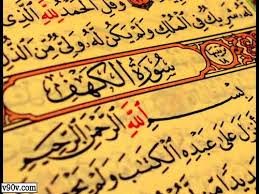 وَقُلِ الْحَمْدُ لِلَّهِ الَّذِي
لَهُ شَرِيكٌ فِي الْمُلْكِ وَلَمْ يَكُن لَّهُ وَلِيٌّ مِّنَ الذُّلِّ
سُورَةُ الْكَهْفِ
بِسْمِ اللَّهِ الرَّحْمَٰنِ الرَّحِيمِ
نزَلَ عَلَىٰ عَبْدِهِ الْكِتَٰبَ وَلَمْ
v90v.com
v90v.com